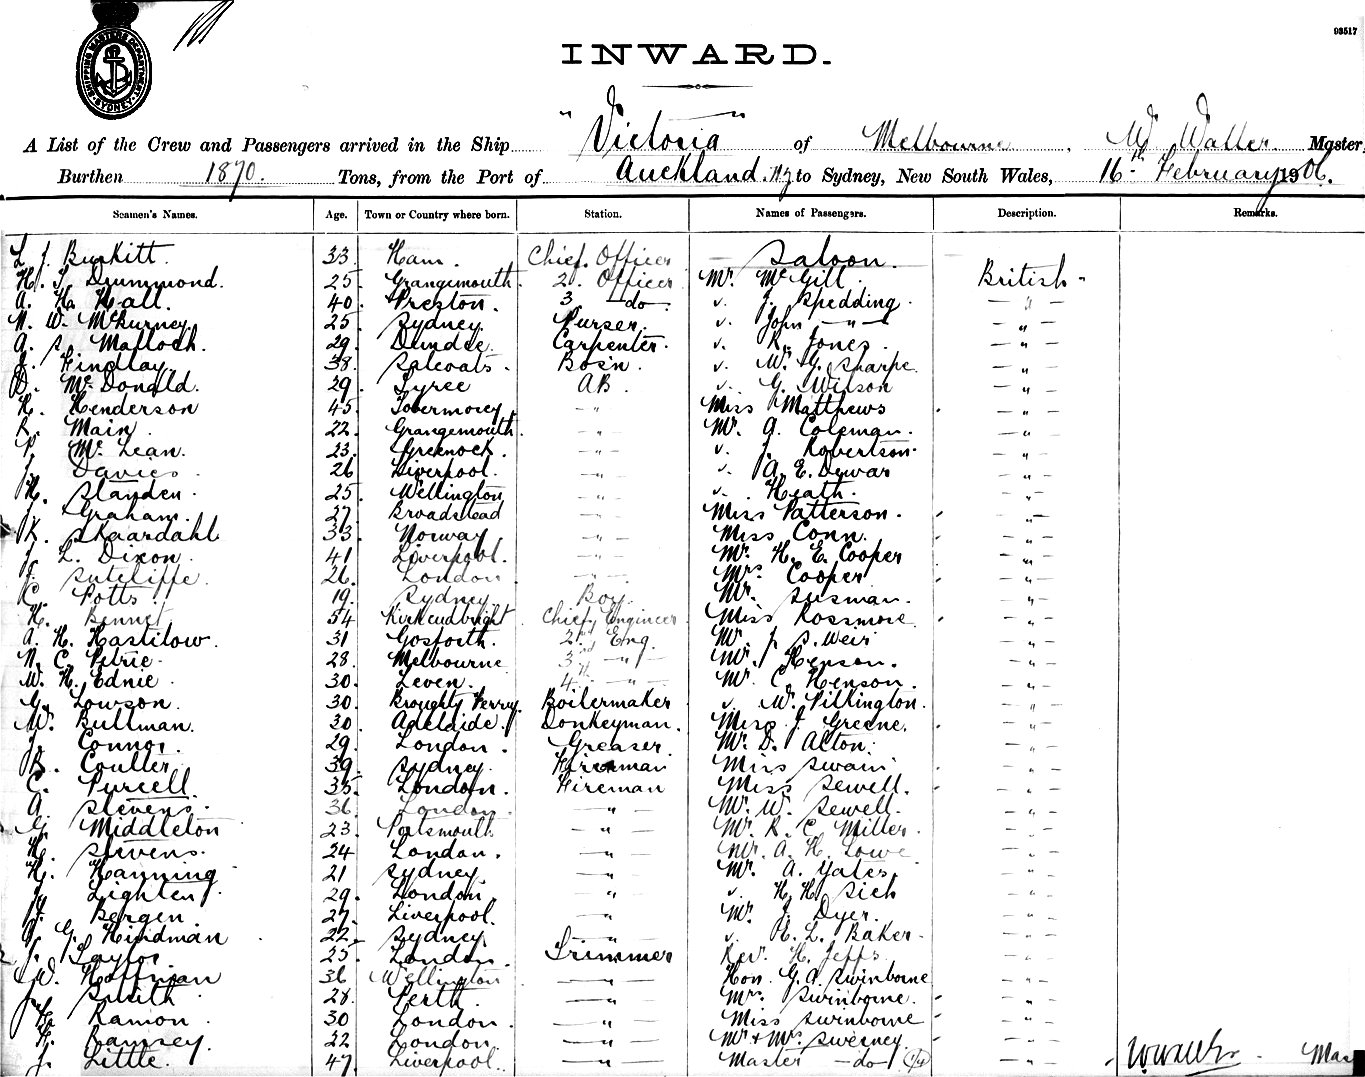 93517
SHIPPING MASTERS DEPARTMENT SYDNEY
INWARD.
A List of the Crew and Passengers arrived in the Ship "Victoria" of Melbourne, W. Waller Master,
Burthen 1870. Tons, from the Port of Auckland. NZ to Sydney, New South Wales, 16th February 1906.
Seamen's Names. Age. Town or Country where born. Station. Names of Passengers. Description. Remarks.
L. J. Burkitt 33. Ham. Chief Officer Saloon.
H. S. Drummond. 25. Grangemouth 2. Officer Mr. McGill. British
A. H. Hall. 40. Preston. 3 do " J. Spedding. "
N. W. McBurney 25 Sydney. Purser. " John " "
A. S. Malloch. 29. Dundee. Carpenter. " R. Jones. "
J. Findlay. 38. Salcoats. Bosn. " W. G. Sharpe. "
D. McDonald. 29. Tyree AB. " G. Wilson "
H. Henderson 45. Tobermorey " Miss Matthews "
R. Main. 22. Grangemouth. " Mr. A. Coleman. "
P. McLean. 23. Greenock. " " J. Robertson. "
J. Davies. 26 Liverpool. " " A. E. Dewar "
H. Standen. 25. Wellington " " Heath. "
J. Graham. 27 Broadstead " Miss Patterson. "
K. Skaardahl 33. Norway " Miss Conn. "
J. L. Dixon. 41 Liverpool. " Mr. H. E. Cooper "
J. Sutcliffe. 26. London " Mrs. Cooper "
C. Potts 19. Sydney Boy. Mr. Susman. "
H. Bennet 54 Kirkcudbright. Chief Engineer Miss Rossmore "
A. H. Hastilow. 31 Gosforth. 2nd Eng. Mr. J. S. Weir "
N. C. Petrie. 28. Melbourne 3rd " Mr. Henson. "
W. H. Ednie. 30. Leven. 4th " Mr. C. Henson. "
G. Lowson. 30. Broughty Ferry. Boilermaker " W. Pilkington. "
W. Bullman. 30. Adelaide. Donkeyman. Miss J. Greene. "
J. Connor. 29. London. Greaser. Mr. D. Alton. "
R. Coulter. 39. Sydney. Fireman Miss Swain "
C. Purcell 35. London. Fireman Miss Sewell. "
A. Stevens. 36. London. " Mr. W. Sewell. "
G. Middleton 23. Portsmouth " Mr. R. C. Miller. "
H. Stevens. 24 London. " Mr. A. H. Lowe "
H. Hanning 21 Sydney. " Mr. A. Yates "
J. Lighten. 29. London. " " H. H. Sich "
J. Bergen 27. Liverpool. " Mr. J. Dyer. "
G. Hindman 22. Sydney " " E. L. Baker. "
J. Taylor 25. London. Trimmer Rev. H. Jeffs. "
W. Hoffman 36 Wellington " Hon. G. A. Swinborne "
J. Smith 28. Perth. " Mrs. Swinborne. "
H. Ramon 30 London. " Miss Swinborne "
H. Ramsey. 22 London. " Mr & Mrs. Sweeney. "
J. Little. 47. Liverpool. " Master do "